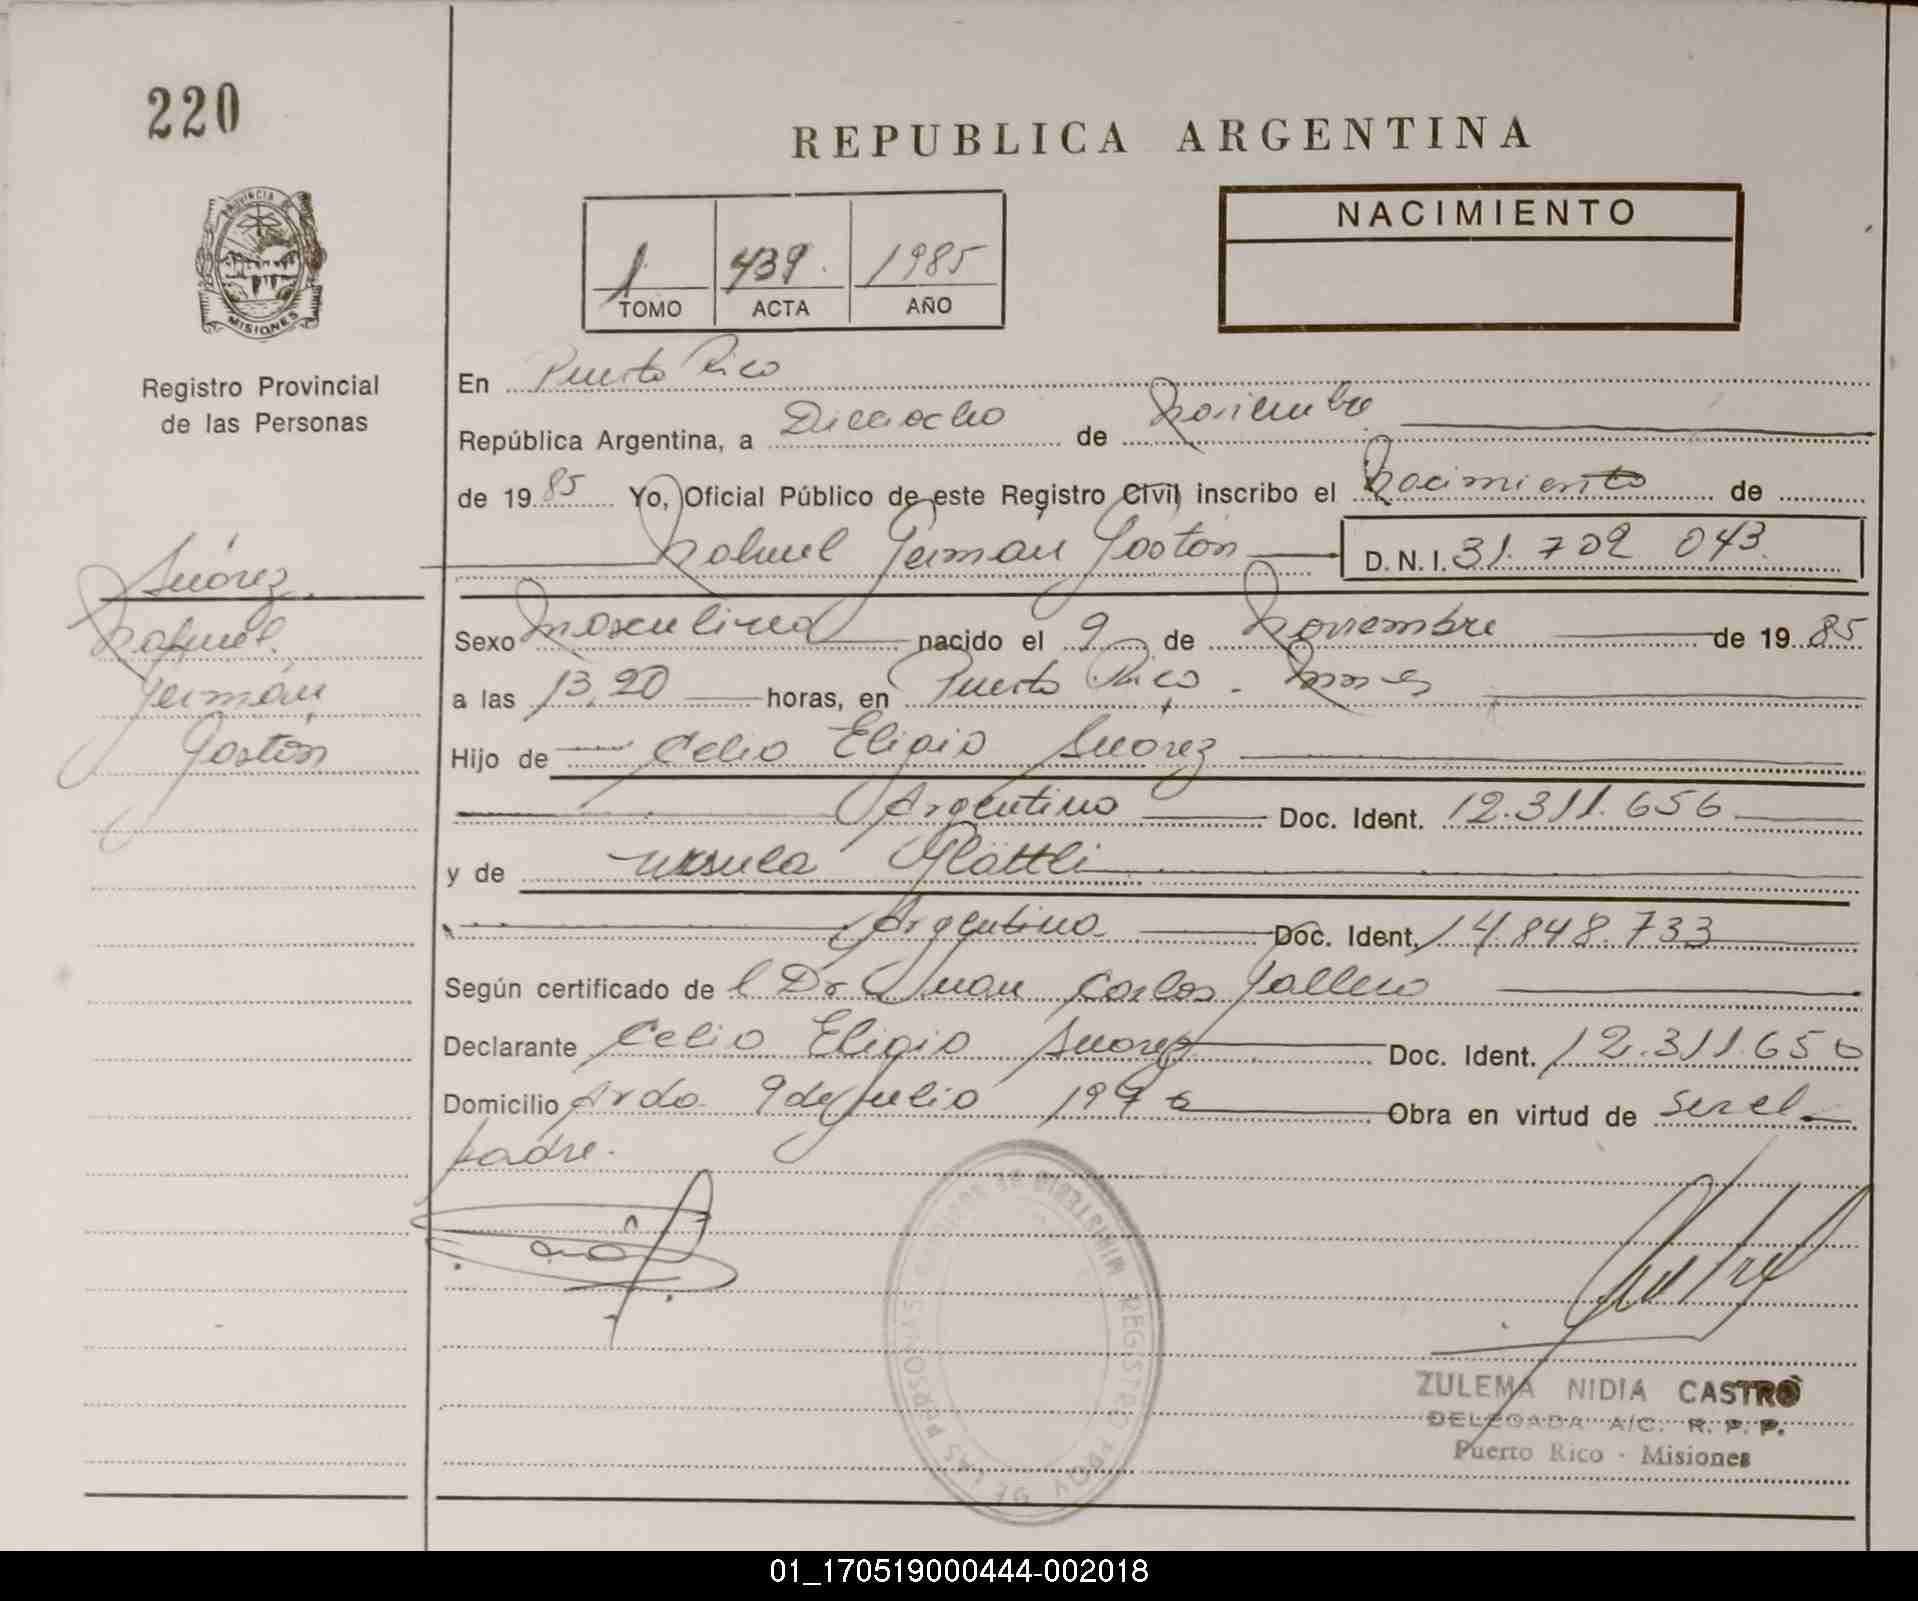 220
REPUBLICA ARGENTINA
NACIMIENTO
1 439 1985
TOMO ACTA AÑO
PROVINCIA DE
MISIONES
Registro Provincial
de las Personas
En Puerto Rico
República Argentina, a Dieciocho de Noviembre
de 19 85 Yo, Oficial Público de este Registro Civil inscribo el Nacimiento de
Nahuel Germán Gastón D.N.I. 31.702.043
Suárez
Nahuel
Germán
Gastón
Sexo Masculino nacido el 9 de Noviembre de 19 85
a las 13,20 horas, en Puerto Rico - Mnes
Hijo de Celio Eligio Suárez
Argentino Doc. Ident. 12.311.656
y de Ursula Glattli
Argentina Doc. Ident. 14.848.733
Según certificado del Dr Juan Carlos Gallero
Declarante Celio Eligio Suarez Doc. Ident. 12.311.656
Domicilio Avda 9 de Julio Obra en virtud de ser el
padre.
MINISTERIO DE
REGISTRO PROV. DE LAS PERSONAS
ZULEMA NIDIA CASTRO
DELEGADA A/C. R. P. P.
Puerto Rico - Misiones
01_170519000444-002018